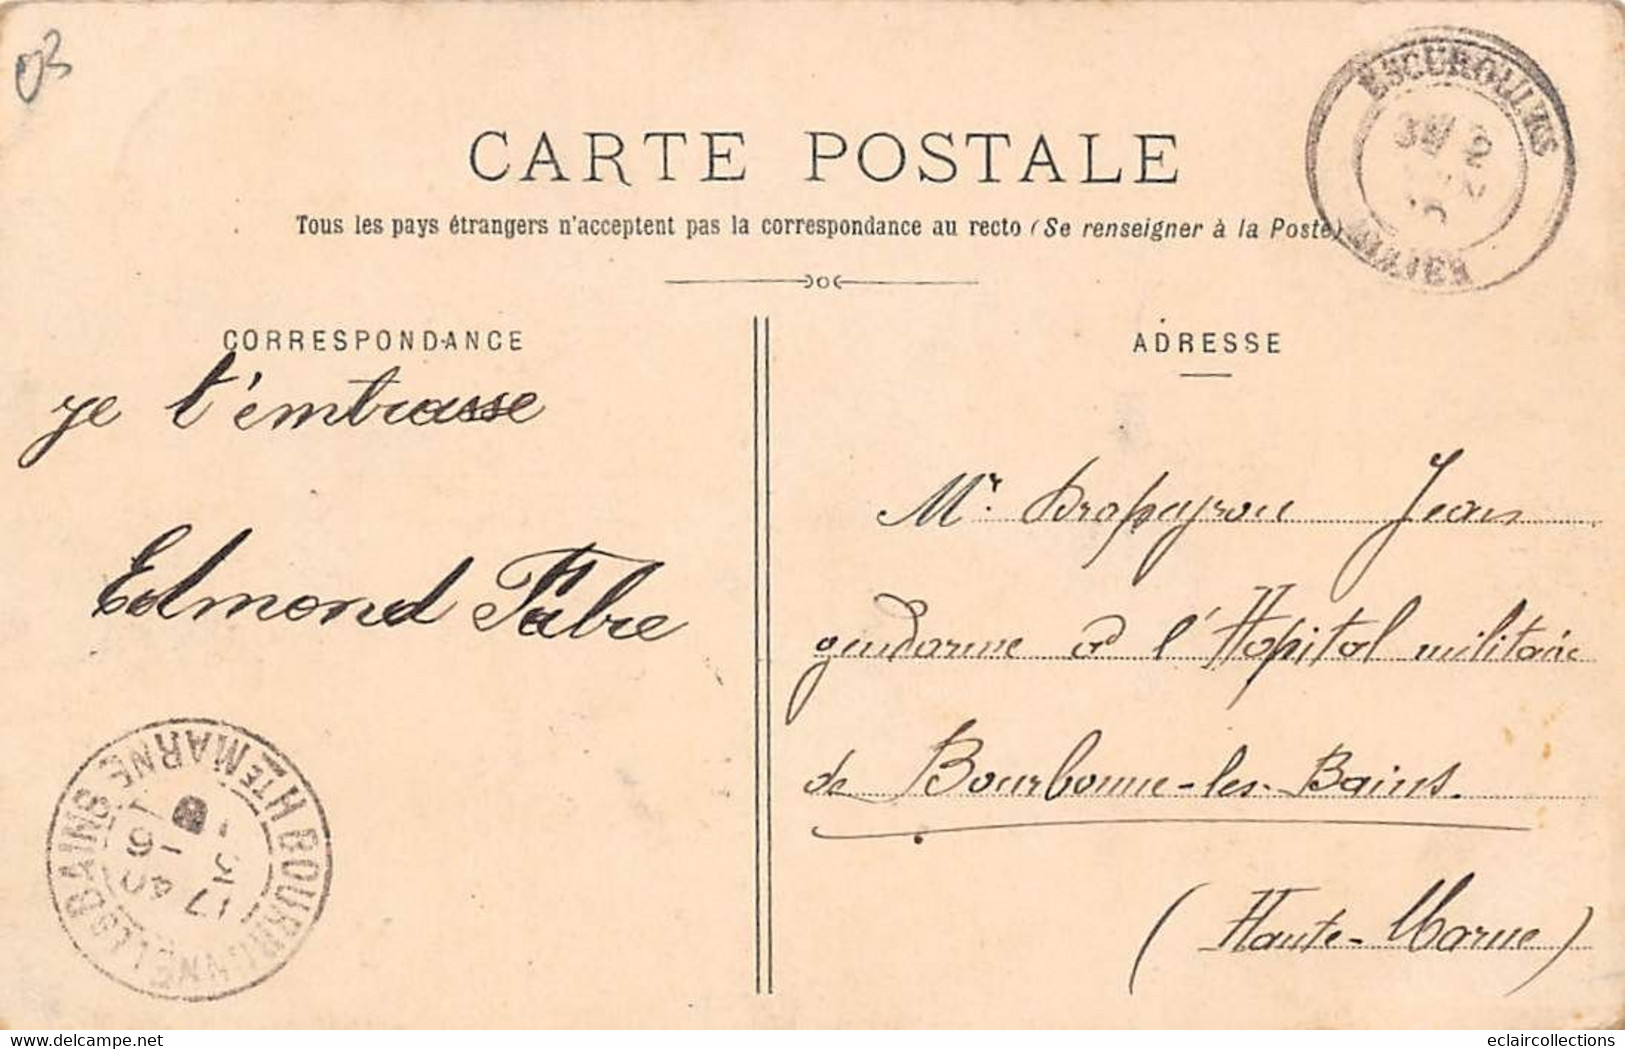 03
CARTE POSTALE
Tous les pays étrangers n'acceptent pas la correspondance au recto (Se renseigner à la Poste)
ESCUROLLES
2
ALLIER
CORRESPONDANCE
je t'émbrasse
Edmond Fabre
BOURBONNE LES BAINS
HTE MARNE
17
ADRESSE
Mr. Drapeyrou Jean
gendarme à l'Hopital militaire
de Bourbonne-les-Bains.
(Haute-Marne)
delcampe.net
eclaircollections